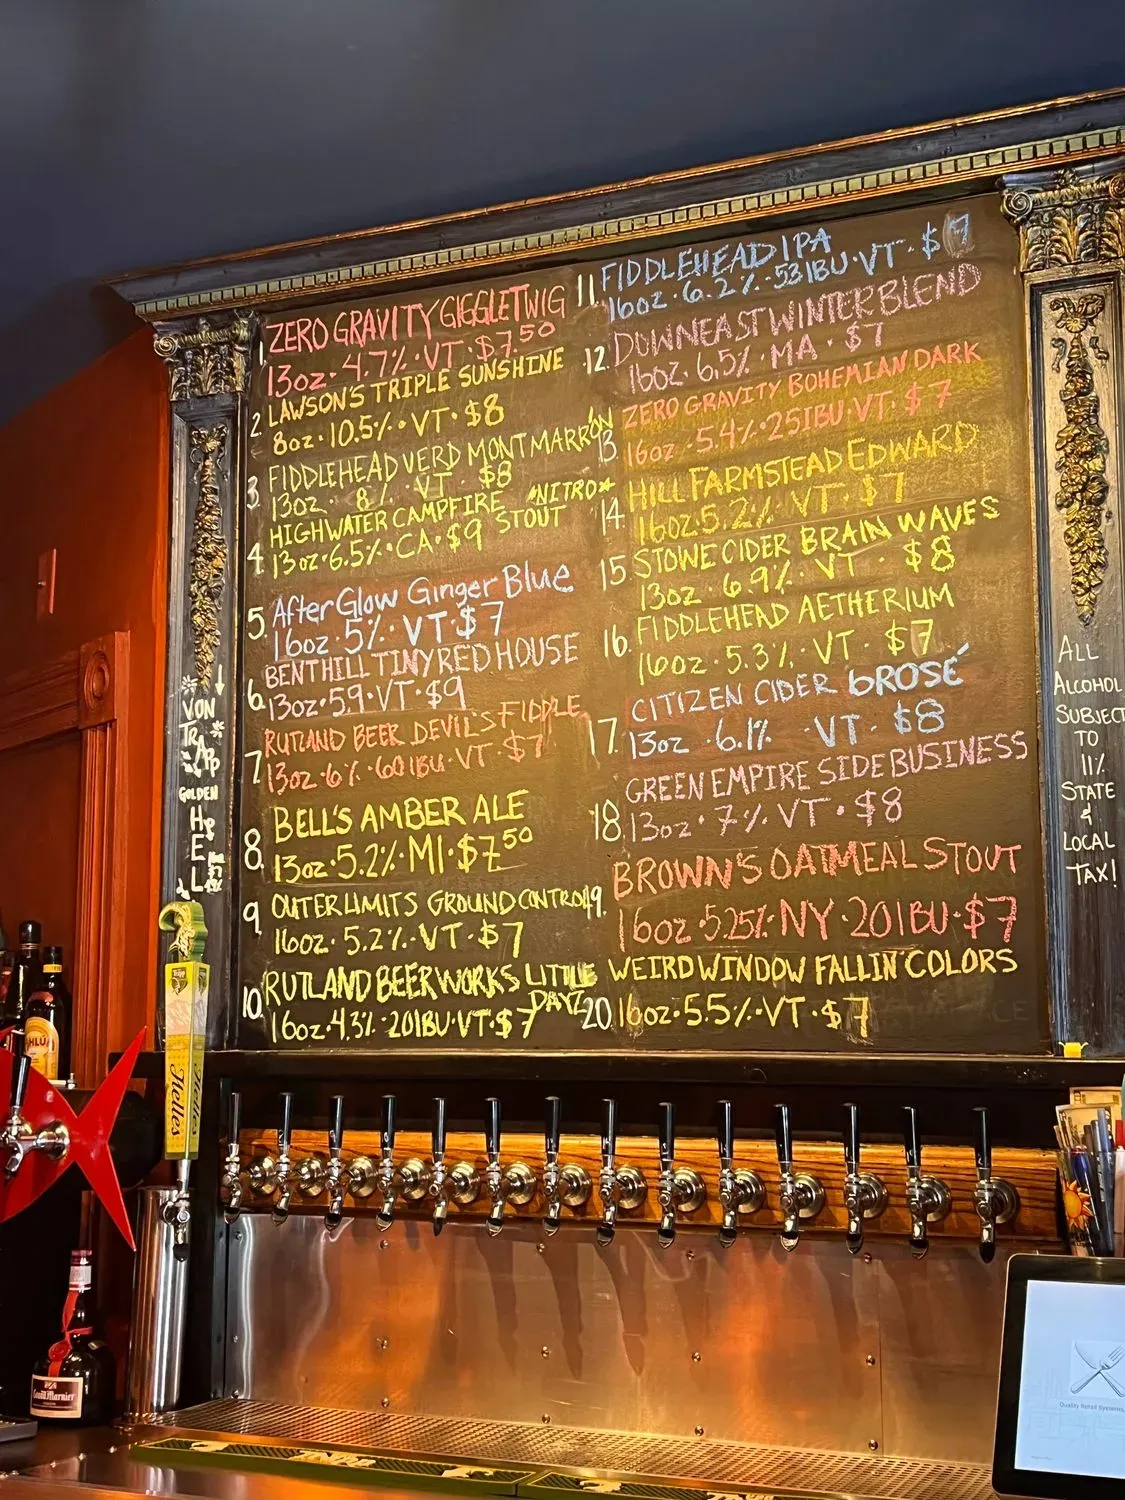 1. ZERO GRAVITY GIGGLETWIG
13oz · 4.7% · VT · $7.50
2. LAWSON'S TRIPLE SUNSHINE
8oz · 10.5% · VT · $8
3. FIDDLEHEAD VERD MONT MARRON
13oz · 8% · VT · $8
4. HIGHWATER CAMPFIRE *NITRO*
STOUT
13oz · 6.5% · CA · $9
5. AfterGlow Ginger Blue
16oz · 5% · VT · $7
6. BENTHILL TINY RED HOUSE
13oz · 5.9 · VT · $9
7. RUTLAND BEER DEVIL'S FIDDLE
13oz · 6% · 60 IBU · VT · $7
8. BELL'S AMBER ALE
13oz · 5.2% · MI · $7.50
9. OUTER LIMITS GROUND CONTROL
16oz · 5.2% · VT · $7
10. RUTLAND BEER WORKS LITTLE
DAYZ
16oz · 4.3% · 20 IBU · VT · $7
11. FIDDLEHEAD IPA
16oz · 6.2% · 53 IBU · VT · $7
12. DOWNEAST WINTER BLEND
16oz · 6.5% · MA · $7
13. ZERO GRAVITY BOHEMIAN DARK
16oz · 5.4% · 25 IBU · VT · $7
14. HILL FARMSTEAD EDWARD
16oz · 5.2% · VT · $7
15. STOWE CIDER BRAIN WAVES
13oz · 6.9% · VT · $8
16. FIDDLEHEAD AETHERIUM
16oz · 5.3% · VT · $7
17. CITIZEN CIDER bROSÉ
13oz · 6.1% · VT · $8
18. GREEN EMPIRE SIDE BUSINESS
13oz · 7% · VT · $8
19. BROWN'S OATMEAL STOUT
16oz · 5.25% · NY · 20 IBU · $7
20. WEIRD WINDOW FALLIN' COLORS
16oz · 5.5% · VT · $7
VON
TRAPP
GOLDEN
HEL
ALL
ALCOHOL
SUBJECT
TO
11%
STATE
&
LOCAL
TAX!
Trapp
Helles
Helles
Grand Marnier
Quality Retail Systems